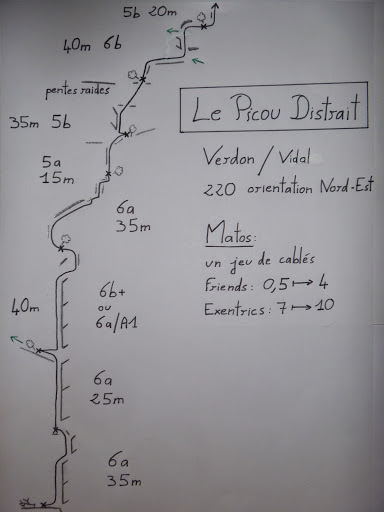 5b 20m
40m 6b
pentes raides
35m 5b
5a
15m
6a
35m
40m
6b+
ou
6a/A1
6a
25m
6a
35m
Le Picou Distrait
Verdon / Vidal
220 orientation Nord-Est
Matos:
un jeu de cablés
Friends: 0,5 ↦ 4
Exentrics: 7 ↦ 10